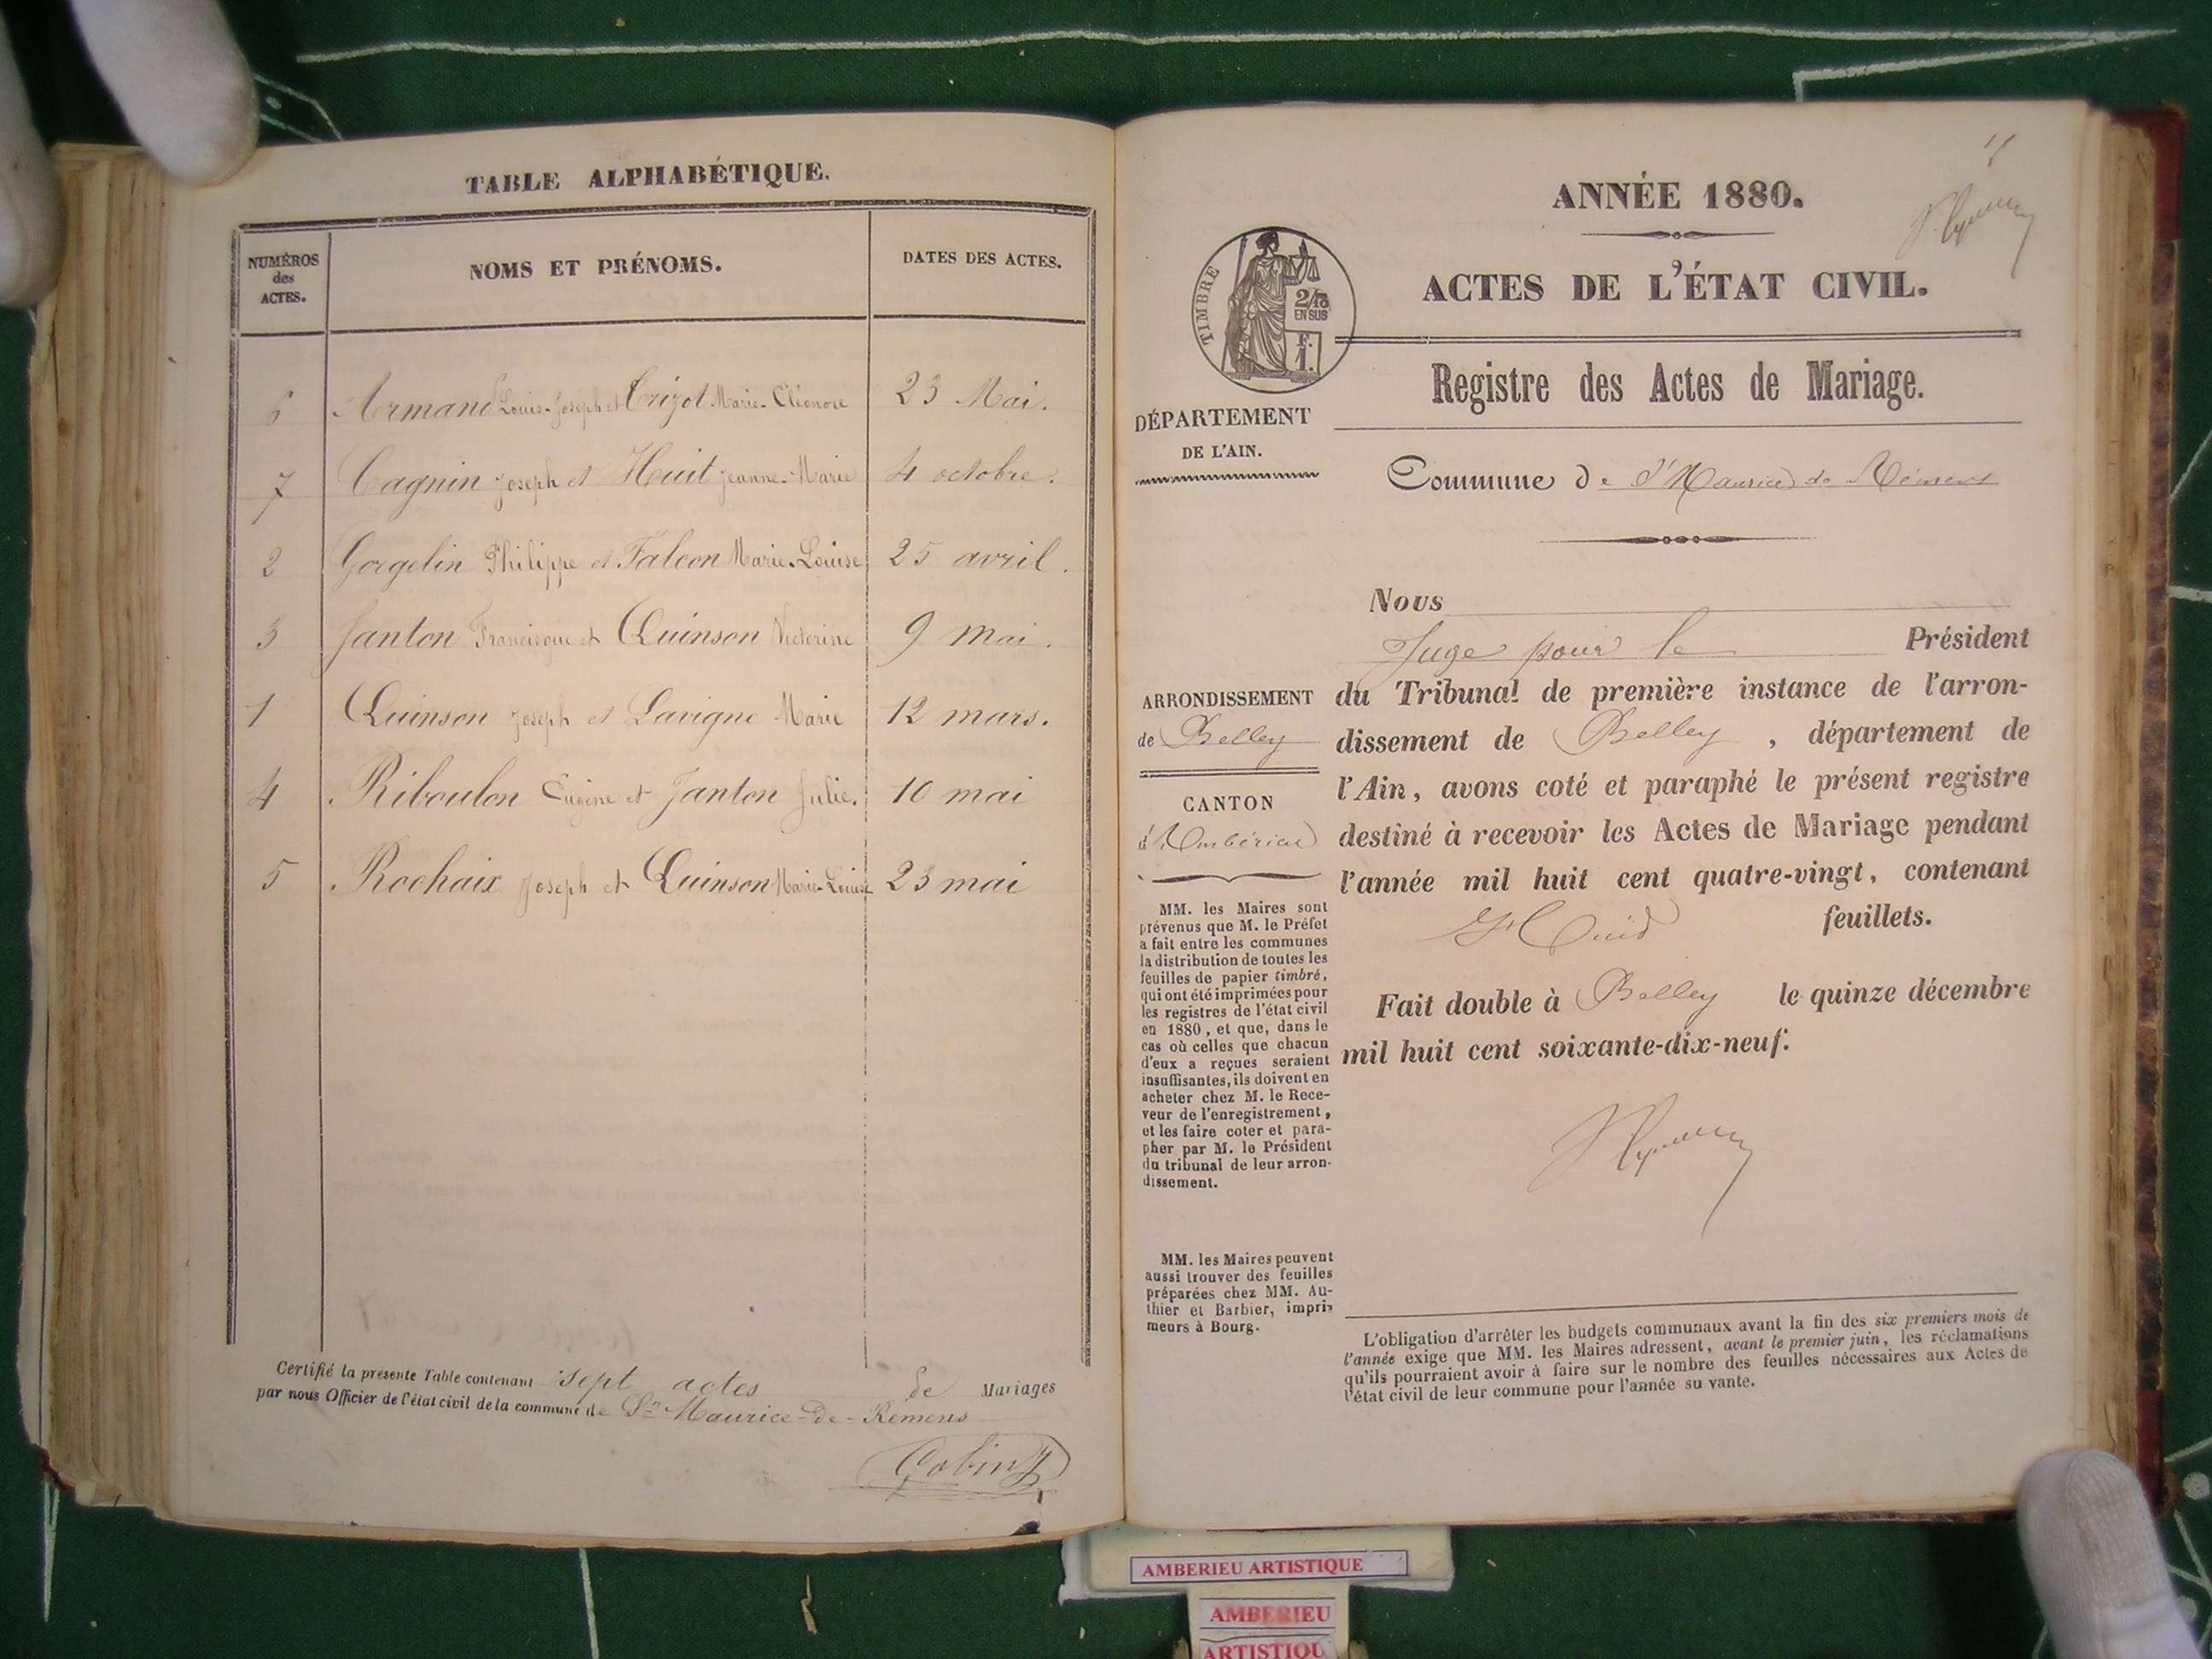 TABLE ALPHABÉTIQUE.
NUMÉROS
des
ACTES.
NOMS ET PRÉNOMS.
DATES DES ACTES.
6 Armand Louis-Joseph et Crizot Marie-Cléonore 23 Mai.
7 Cagnin Joseph et Huit Jeanne-Marie 4 octobre.
2 Gorgelin Philippe et Falcon Marie-Louise 25 avril.
3 Janton Francisque et Quinson Victorine 9 mai.
1 Quinson Joseph et Lavigne Marie 12 mars.
4 Riboulon Eugène et Janton Julie. 10 mai
5 Rochaix Joseph et Quinson Marie-Louise 23 mai
Certifié la presente Table contenant sept actes de Mariages
par nous Officier de l'état civil de la commune de St Maurice-de-Rémens
Gobin
ANNÉE 1880.
ACTES DE L'ÉTAT CIVIL.
TIMBRE
2/10
EN SUS
F.
1.
Registre des Actes de Mariage.
DÉPARTEMENT
DE L'AIN.
Commune de St Maurice de Rémens
Nous
Juge pour le Président
du Tribunal de première instance de l'arron-
dissement de Belley, département de
l'Ain, avons coté et paraphé le présent registre
destiné à recevoir les Actes de Mariage pendant
l'année mil huit cent quatre-vingt, contenant
feuillets.
Fait double à Belley le quinze décembre
mil huit cent soixante-dix-neuf.
ARRONDISSEMENT
de Belley
CANTON
d'Ambérieu
MM. les Maires sont
prévenus que M. le Préfet
a fait entre les communes
la distribution de toutes les
feuilles de papier timbré,
qui ont été imprimées pour
les registres de l'état civil
en 1880, et que, dans le
cas où celles que chacun
d'eux a reçues seraient
insuffisantes, ils doivent en
acheter chez M. le Rece-
veur de l'enregistrement,
et les faire coter et para-
pher par M. le Président
du tribunal de leur arron-
dissement.
MM. les Maires peuvent
aussi trouver des feuilles
préparées chez MM. Au-
thier et Barbier, impri-
meurs à Bourg.
L'obligation d'arrêter les budgets communaux avant la fin des six premiers mois de
l'année exige que MM. les Maires adressent, avant le premier juin, les réclamations
qu'ils pourraient avoir à faire sur le nombre des feuilles nécessaires aux Actes de
l'état civil de leur commune pour l'année su vante.
AMBERIEU ARTISTIQUE
AMBERIEU
ARTISTIQU